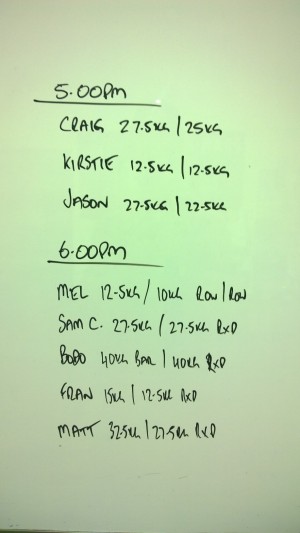 5.00PM
CRAIG 27.5KG / 25KG
KIRSTIE 12.5KG / 12.5KG
JASON 27.5KG / 22.5KG
6.00PM
MEL 12.5KG / 10KG ROW / ROW
SAM C. 27.5KG / 27.5KG RXD
BOBO 40KG BAR / 40KG RXD
FRAN 15KG / 12.5KG RXD
MATT 32.5KG / 27.5KG RXD